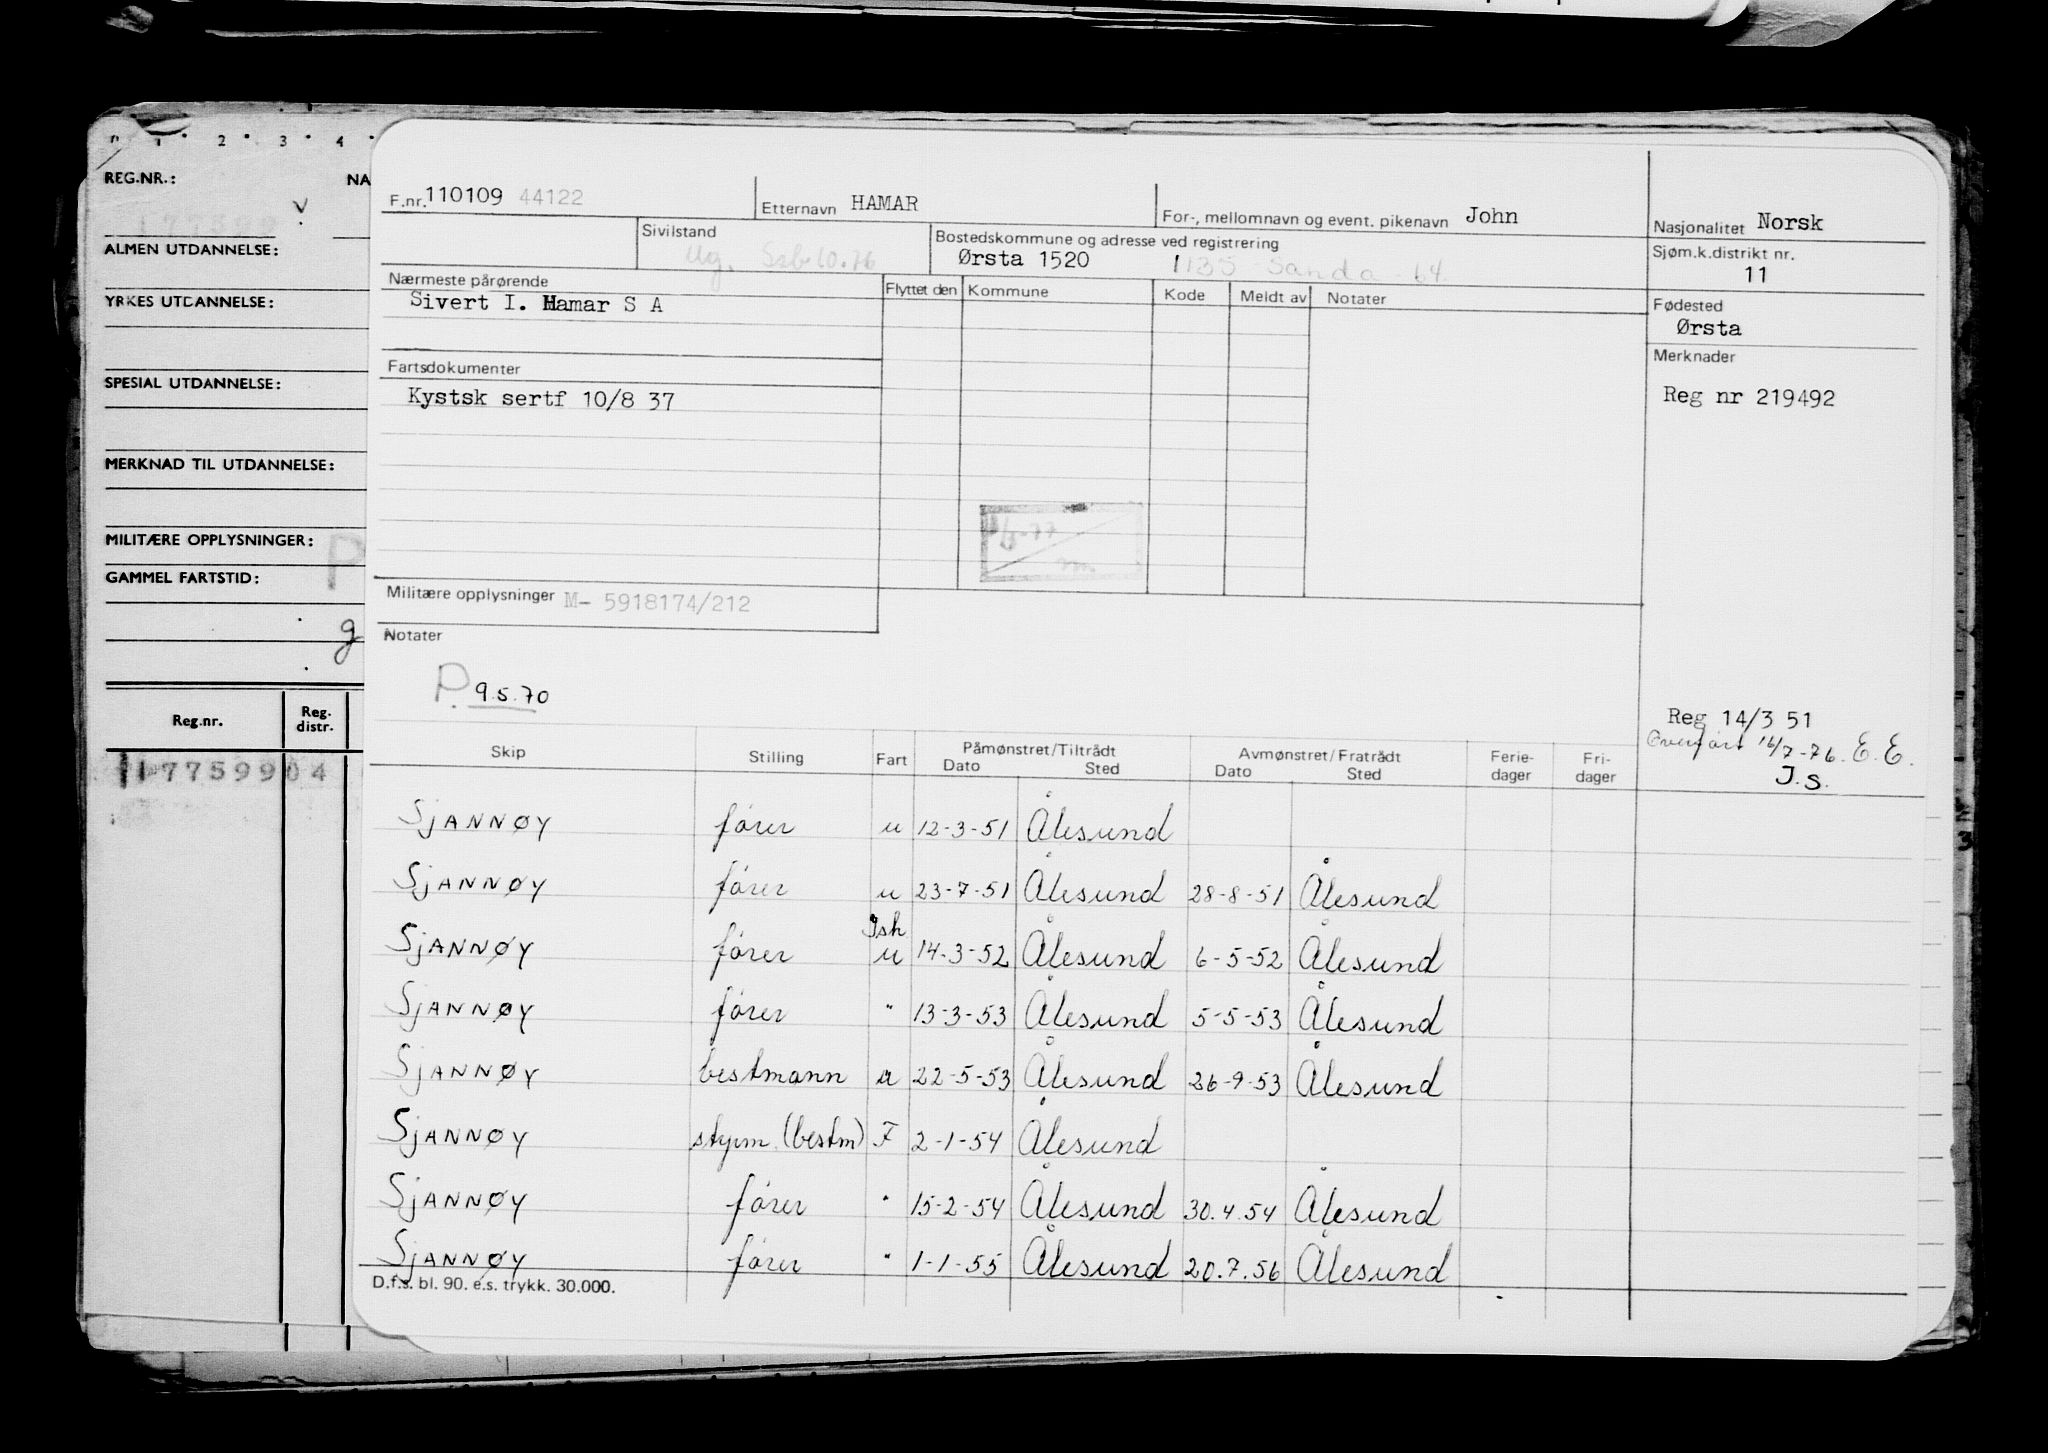 0 1 2 3 4
REG.NR.: NA
177599
v
ALMEN UTDANNELSE:
YRKES UTDANNELSE:
SPESIAL UTDANNELSE:
MERKNAD TIL UTDANNELSE:
MILITÆRE OPPLYSNINGER: P
GAMMEL FARTSTID:
g
Reg.nr. Reg. distr.
17759904
F.nr. 110109 44122
Etternavn HAMAR
For-, mellomnavn og event. pikenavn John
Nasjonalitet Norsk
Sivilstand
Ug. Ssb 10.76
Bostedskommune og adresse ved registrering
Ørsta 1520 1135 Sanda - 64
Sjøm.k.distrikt nr.
11
Nærmeste pårørende
Sivert I. Hamar S A
Flyttet den Kommune Kode Meldt av Notater
Fødested
Ørsta
Merknader
Reg nr 219492
Fartsdokumenter
Kystsk sertf 10/8 37
Militære opplysninger M- 5918174/212
Notater
P. 9.5.70
Reg 14/3 51
Overført 16/7-76. E.E.
J.S.
Skip Stilling Fart Påmønstret/Tiltrådt Avmønstret/Fratrådt Ferie- dager Fri- dager
Dato Sted Dato Sted
SJANNØY fører u 12-3-51 Ålesund
SJANNØY fører u 23-7-51 Ålesund 28-8-51 Ålesund
Ish
SJANNØY fører u 14-3-52 Ålesund 6-5-52 Ålesund
SJANNØY fører " 13-3-53 Ålesund 5-5-53 Ålesund
SJANNØY bestmann u 22-5-53 Ålesund 26-9-53 Ålesund
SJANNØY styrm. (bestm) F 2-1-54 Ålesund
SJANNØY fører " 15-2-54 Ålesund 30.4.54 Ålesund
SJANNØY fører " 1-1-55 Ålesund 20.7.56 Ålesund
D.f.s. bl. 90. e.s. trykk. 30.000.
3